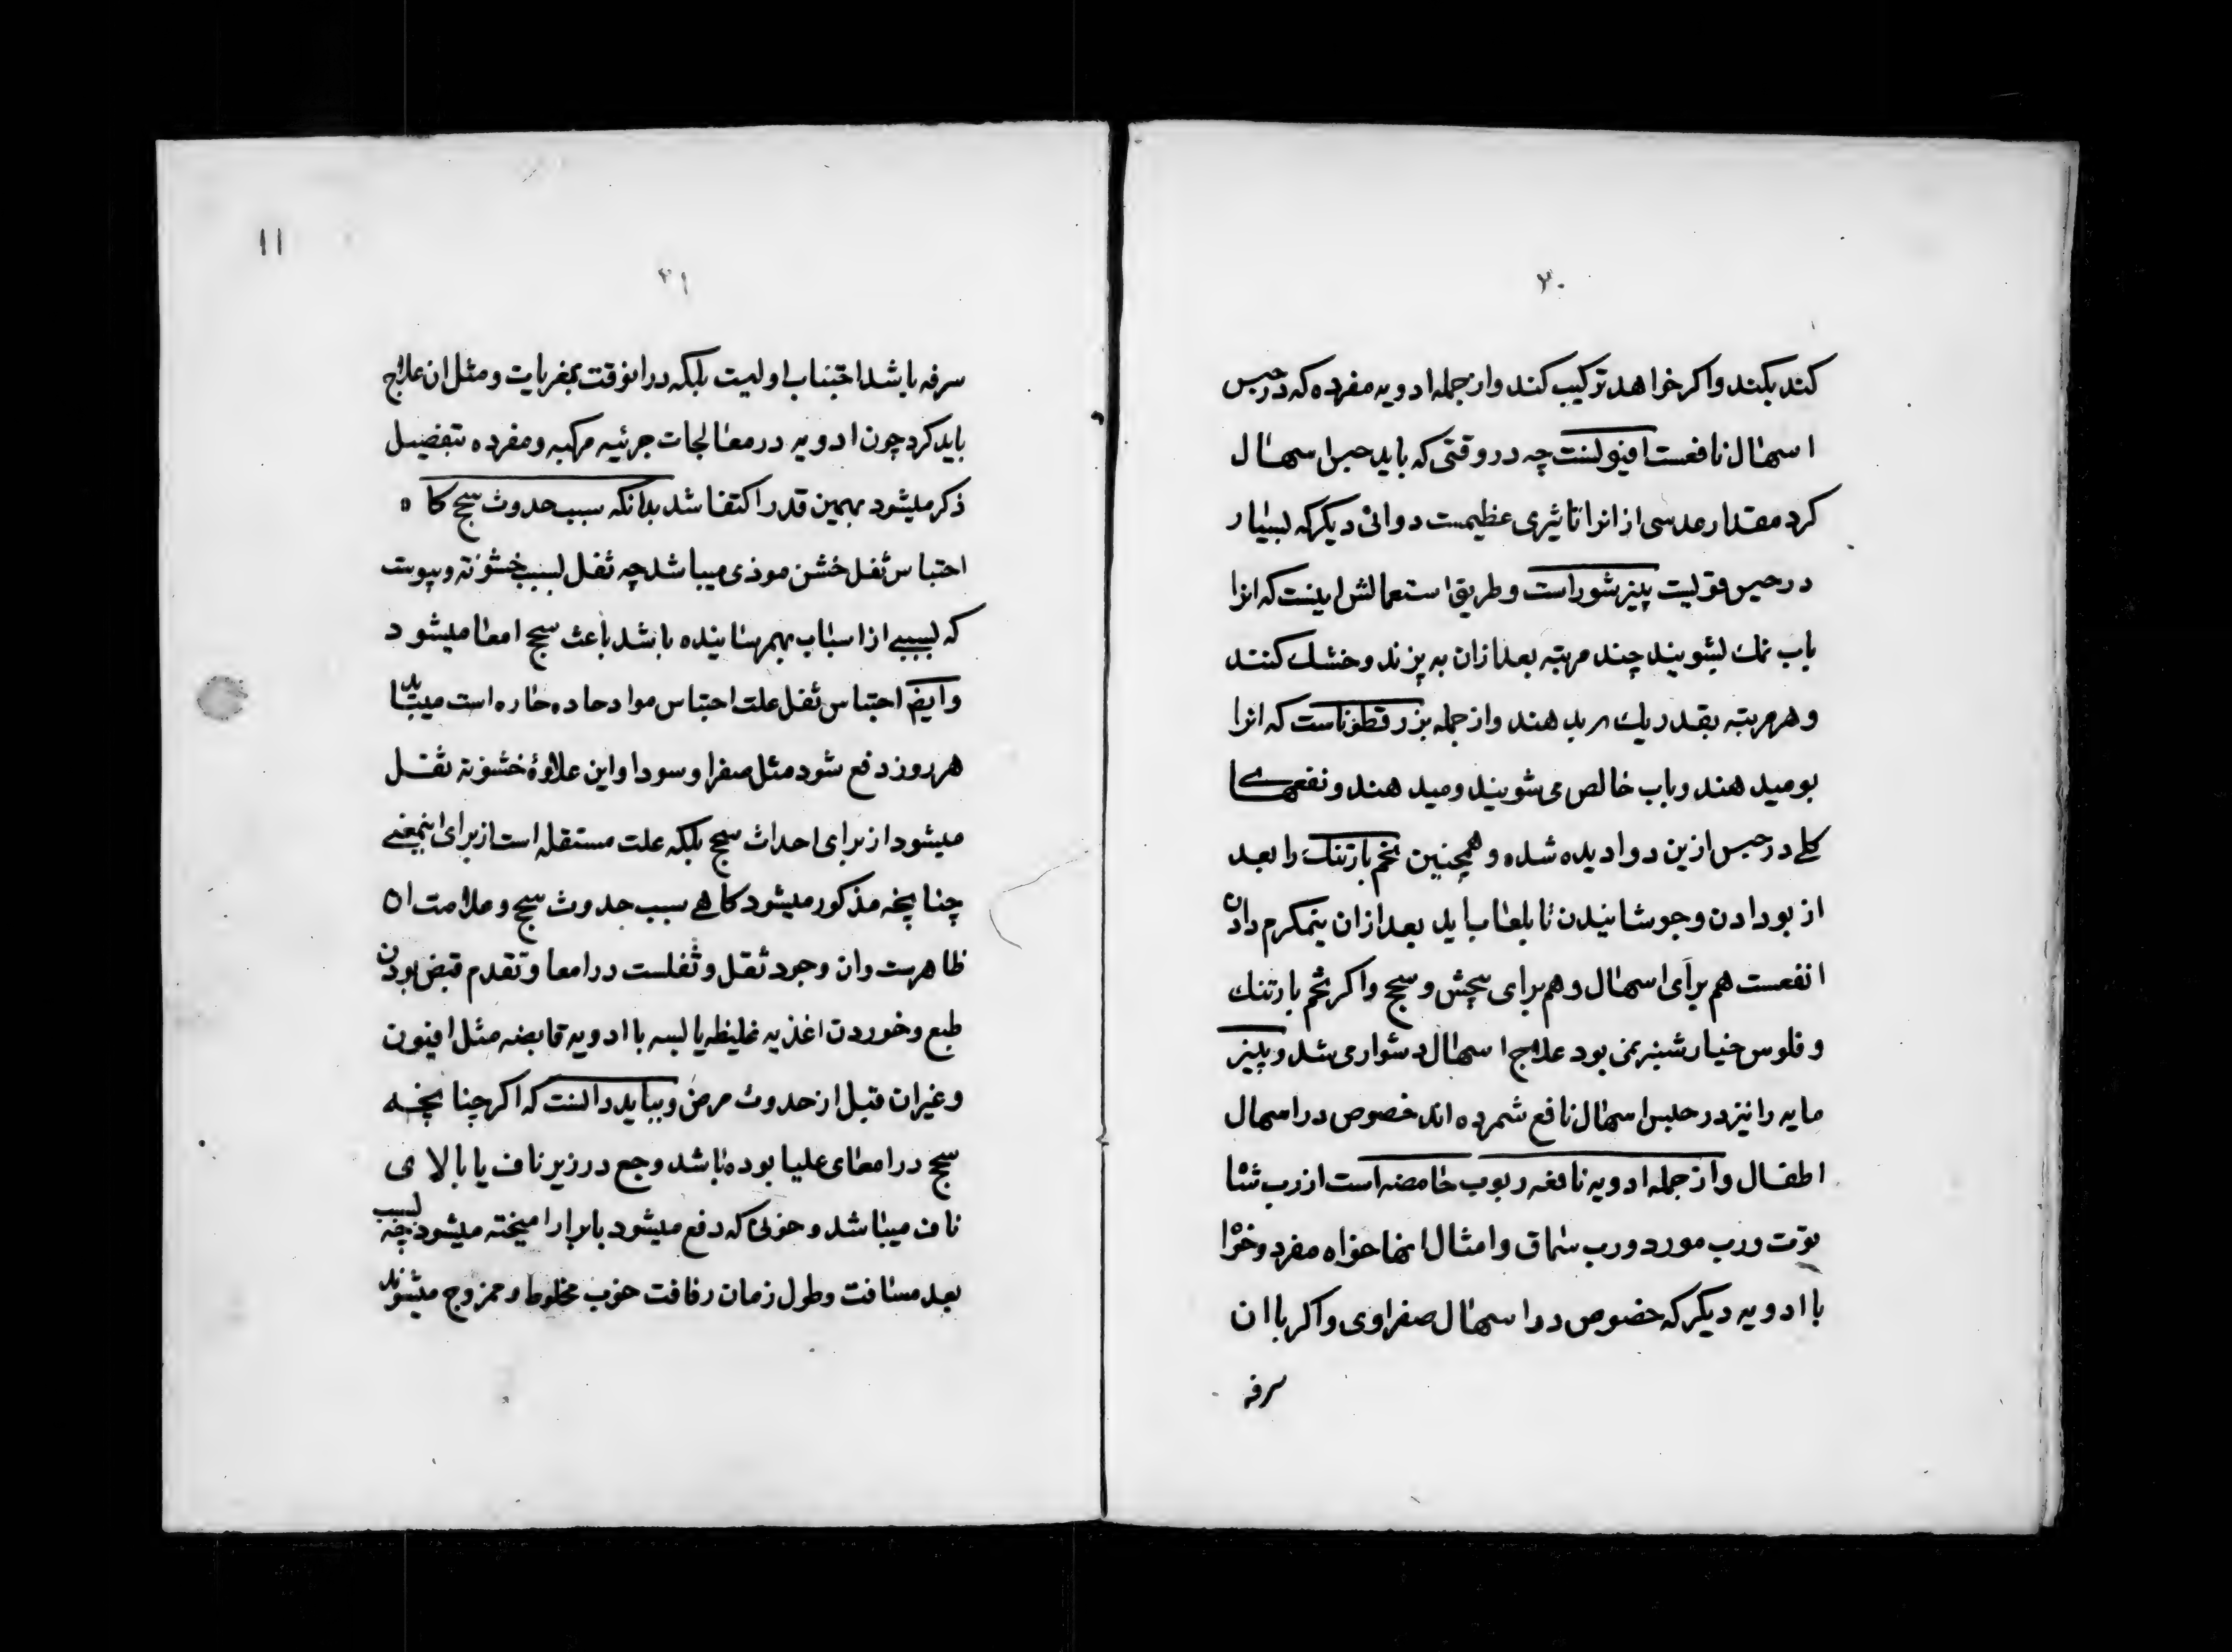 ۲۰
کند بکند واکر خواهد ترکیب کند واز جمله ادویه مفرده که در حبس
اسهال نافعست افیونست چه در وقتی که باید حبس اسهال
کرد مقدار عدسی از انرا تاثیری عظیمست دوائی دیکر که بسیار
در حبس قویست پنیر شور است وطریق استعمالش اینست که انرا
باب نمك بشویند چند مرتبه بعد ازان به پزند وخشك کنند
وهر مرتبه بقدر یك بدهند واز جمله بزر قطوناست که انرا
بو میدهند وباب خالص می شویند ومیدهند ونفعهای
کلی در حبس ازین دوا دیده شده وهمچنین تخم بارتنك را بعد
از بو دادن وجوشانیدن تا بلعاب اید بعد ازان نیمکرم دادن
انفعست هم برای اسهال وهم برای پیچش وسحج واکر تخم بارتنك
وفلوس خیار شنبر نمی بود علاج اسهال دشوار می شد وپنیر
مایه را نیز در حبس اسهال نافع شمرده اند خصوص در اسهال
اطفال واز جمله ادویه نافعه ربوب حامضه است از رب
توت ورب مورد ورب سماق وامثال انها خواه مفرد وخواه
با ادویه دیکر که خصوص در اسهال صفراوی واکر باان
سرفه
۱۱
۲۱
سرفه باشد اجتناب اولیست بلکه درانوقت بمغریات ومثل ان علاج
باید کرد چون ادویه در معالجات جزئیه مرکبه ومفرده بتفضیل
ذکر میشود بهمین قدر اکتفا شد بدانکه سبب حدوث سحج کاه
احتباس ثفل خشن موذی میباشد چه ثفل بسبب خشونة ویبوست
که بسببی از اسباب بهم رسانیده باشد باعث سحج امعا میشود
وایضا احتباس ثفل علت احتباس مواد حاده حاره است میباید
هر روز دفع شود مثل صفرا وسودا واین علاوۀ خشونة ثفل
میشود از برای احداث سحج بلکه علت مستقله است از برای اینمعنی
چنانچه مذکور میشود کاهی سبب حدوث سحج وعلامت ان
ظاهرست وان وجود ثقل وثفلست در امعا وتقدم قبض بودن
طبع وخوردن اغذیه غلیظه یابسه با ادویه قابضه مثل افیون
وغیران قبل از حدوث مرض وبباید دانست که اکر چنانچه
سحج در امعای علیا بوده باشد وجع در زیر ناف یا بالای
ناف میباشد وخونی که دفع میشود با براز امیخته میشود چه بسبب
بعد مسافت وطول زمان رفاقت خوب مخلوط وممزوج میشوند